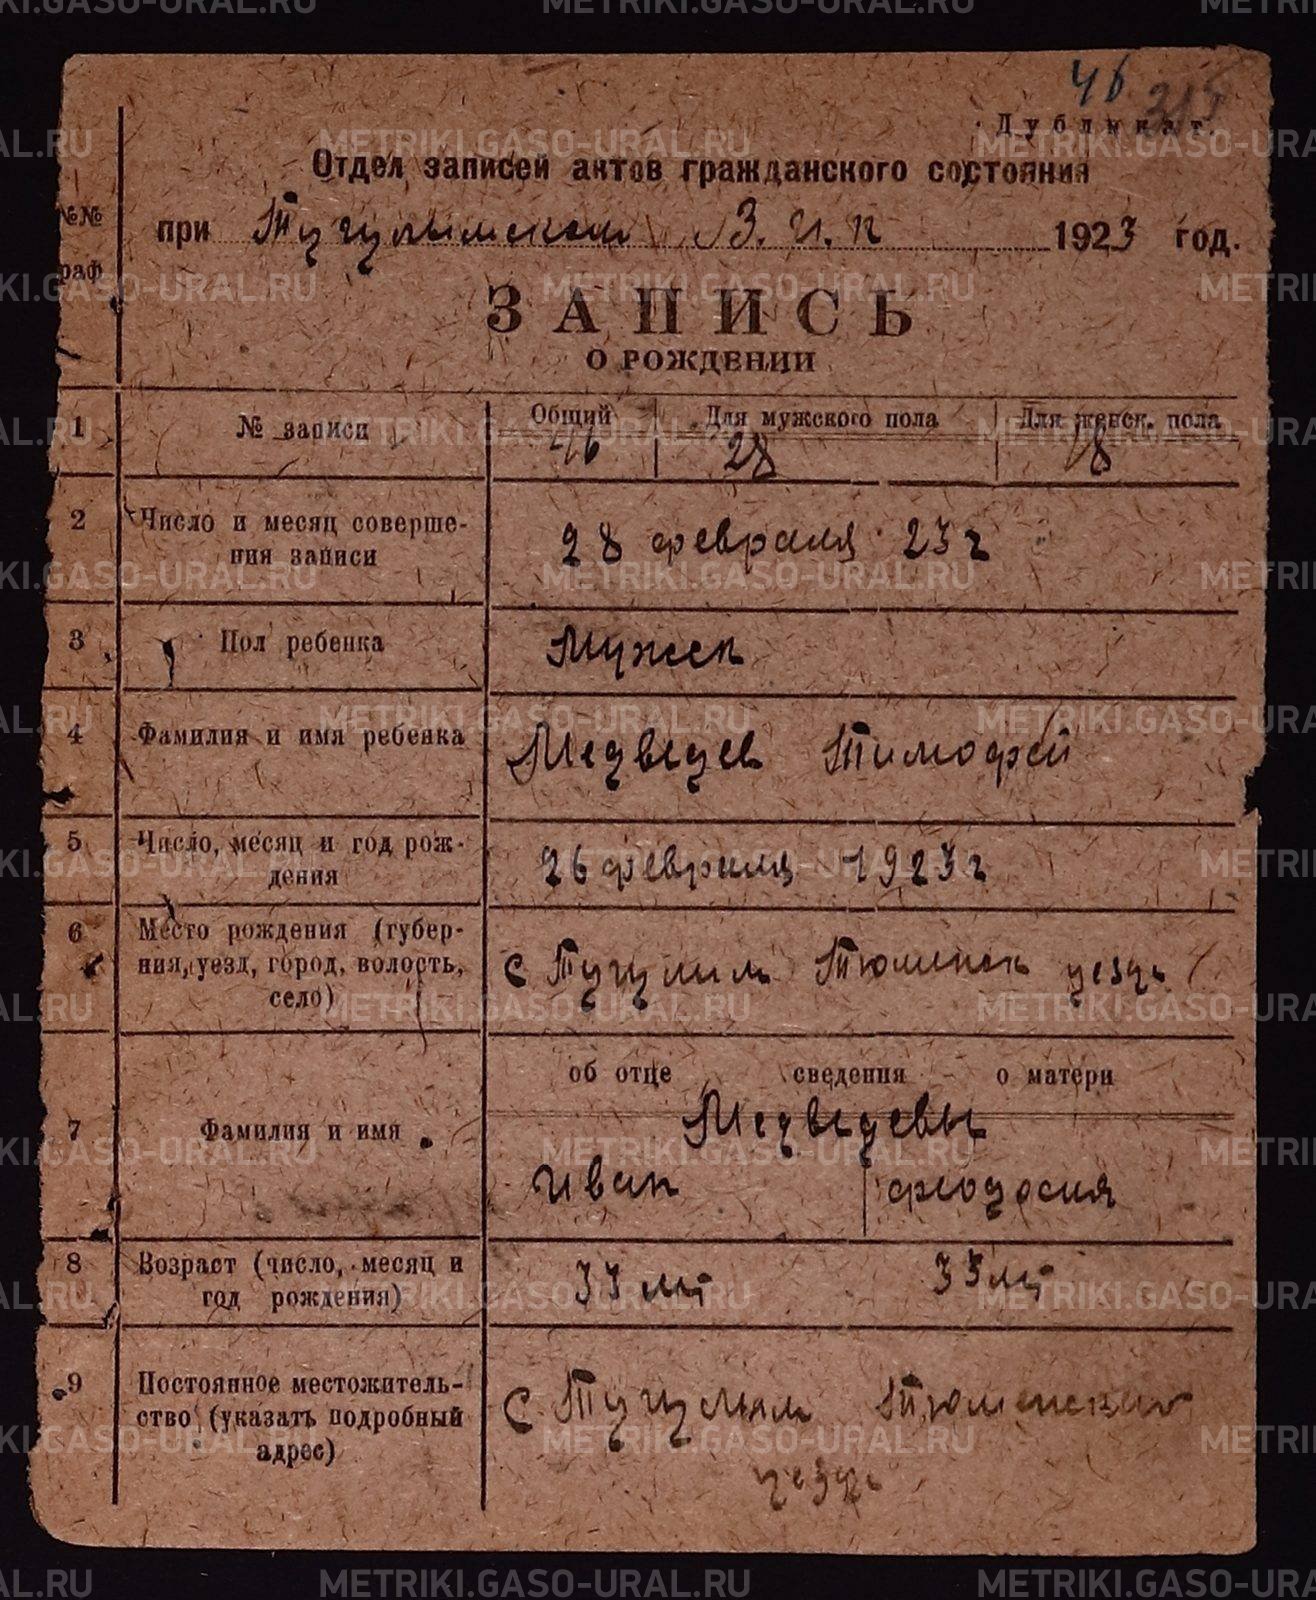 46 215
Дубликат.
Отдел записей актов гражданского состояния
№№
раф
при Тугулымском З.И.П 1923 год.
ЗАПИСЬ
О РОЖДЕНИИ
1 № записи Общий Для мужского пола Для женск. пола
46 28 18
2 Число и месяц соверше-
ния записи
28 февраля 23 г
3 Пол ребенка Мужск
4 Фамилия и имя ребенка Медведев Тимофей
5 Число, месяц и год рож-
дения
26 февраля 1923 г
6 Место рождения (губер-
ния, уезд, город, волость,
село)
с Тугулым Тюменск уезда
об отце сведения о матери
7 Фамилия и имя
Медведевы
Иван Феодосия
8 Возраст (число, месяц и
год рождения)
33 лет 33 лет
9 Постоянное местожитель-
ство (указать подробный
адрес)
с Тугулым Тюменского
уезда
METRIKI.GASO-URAL.RU